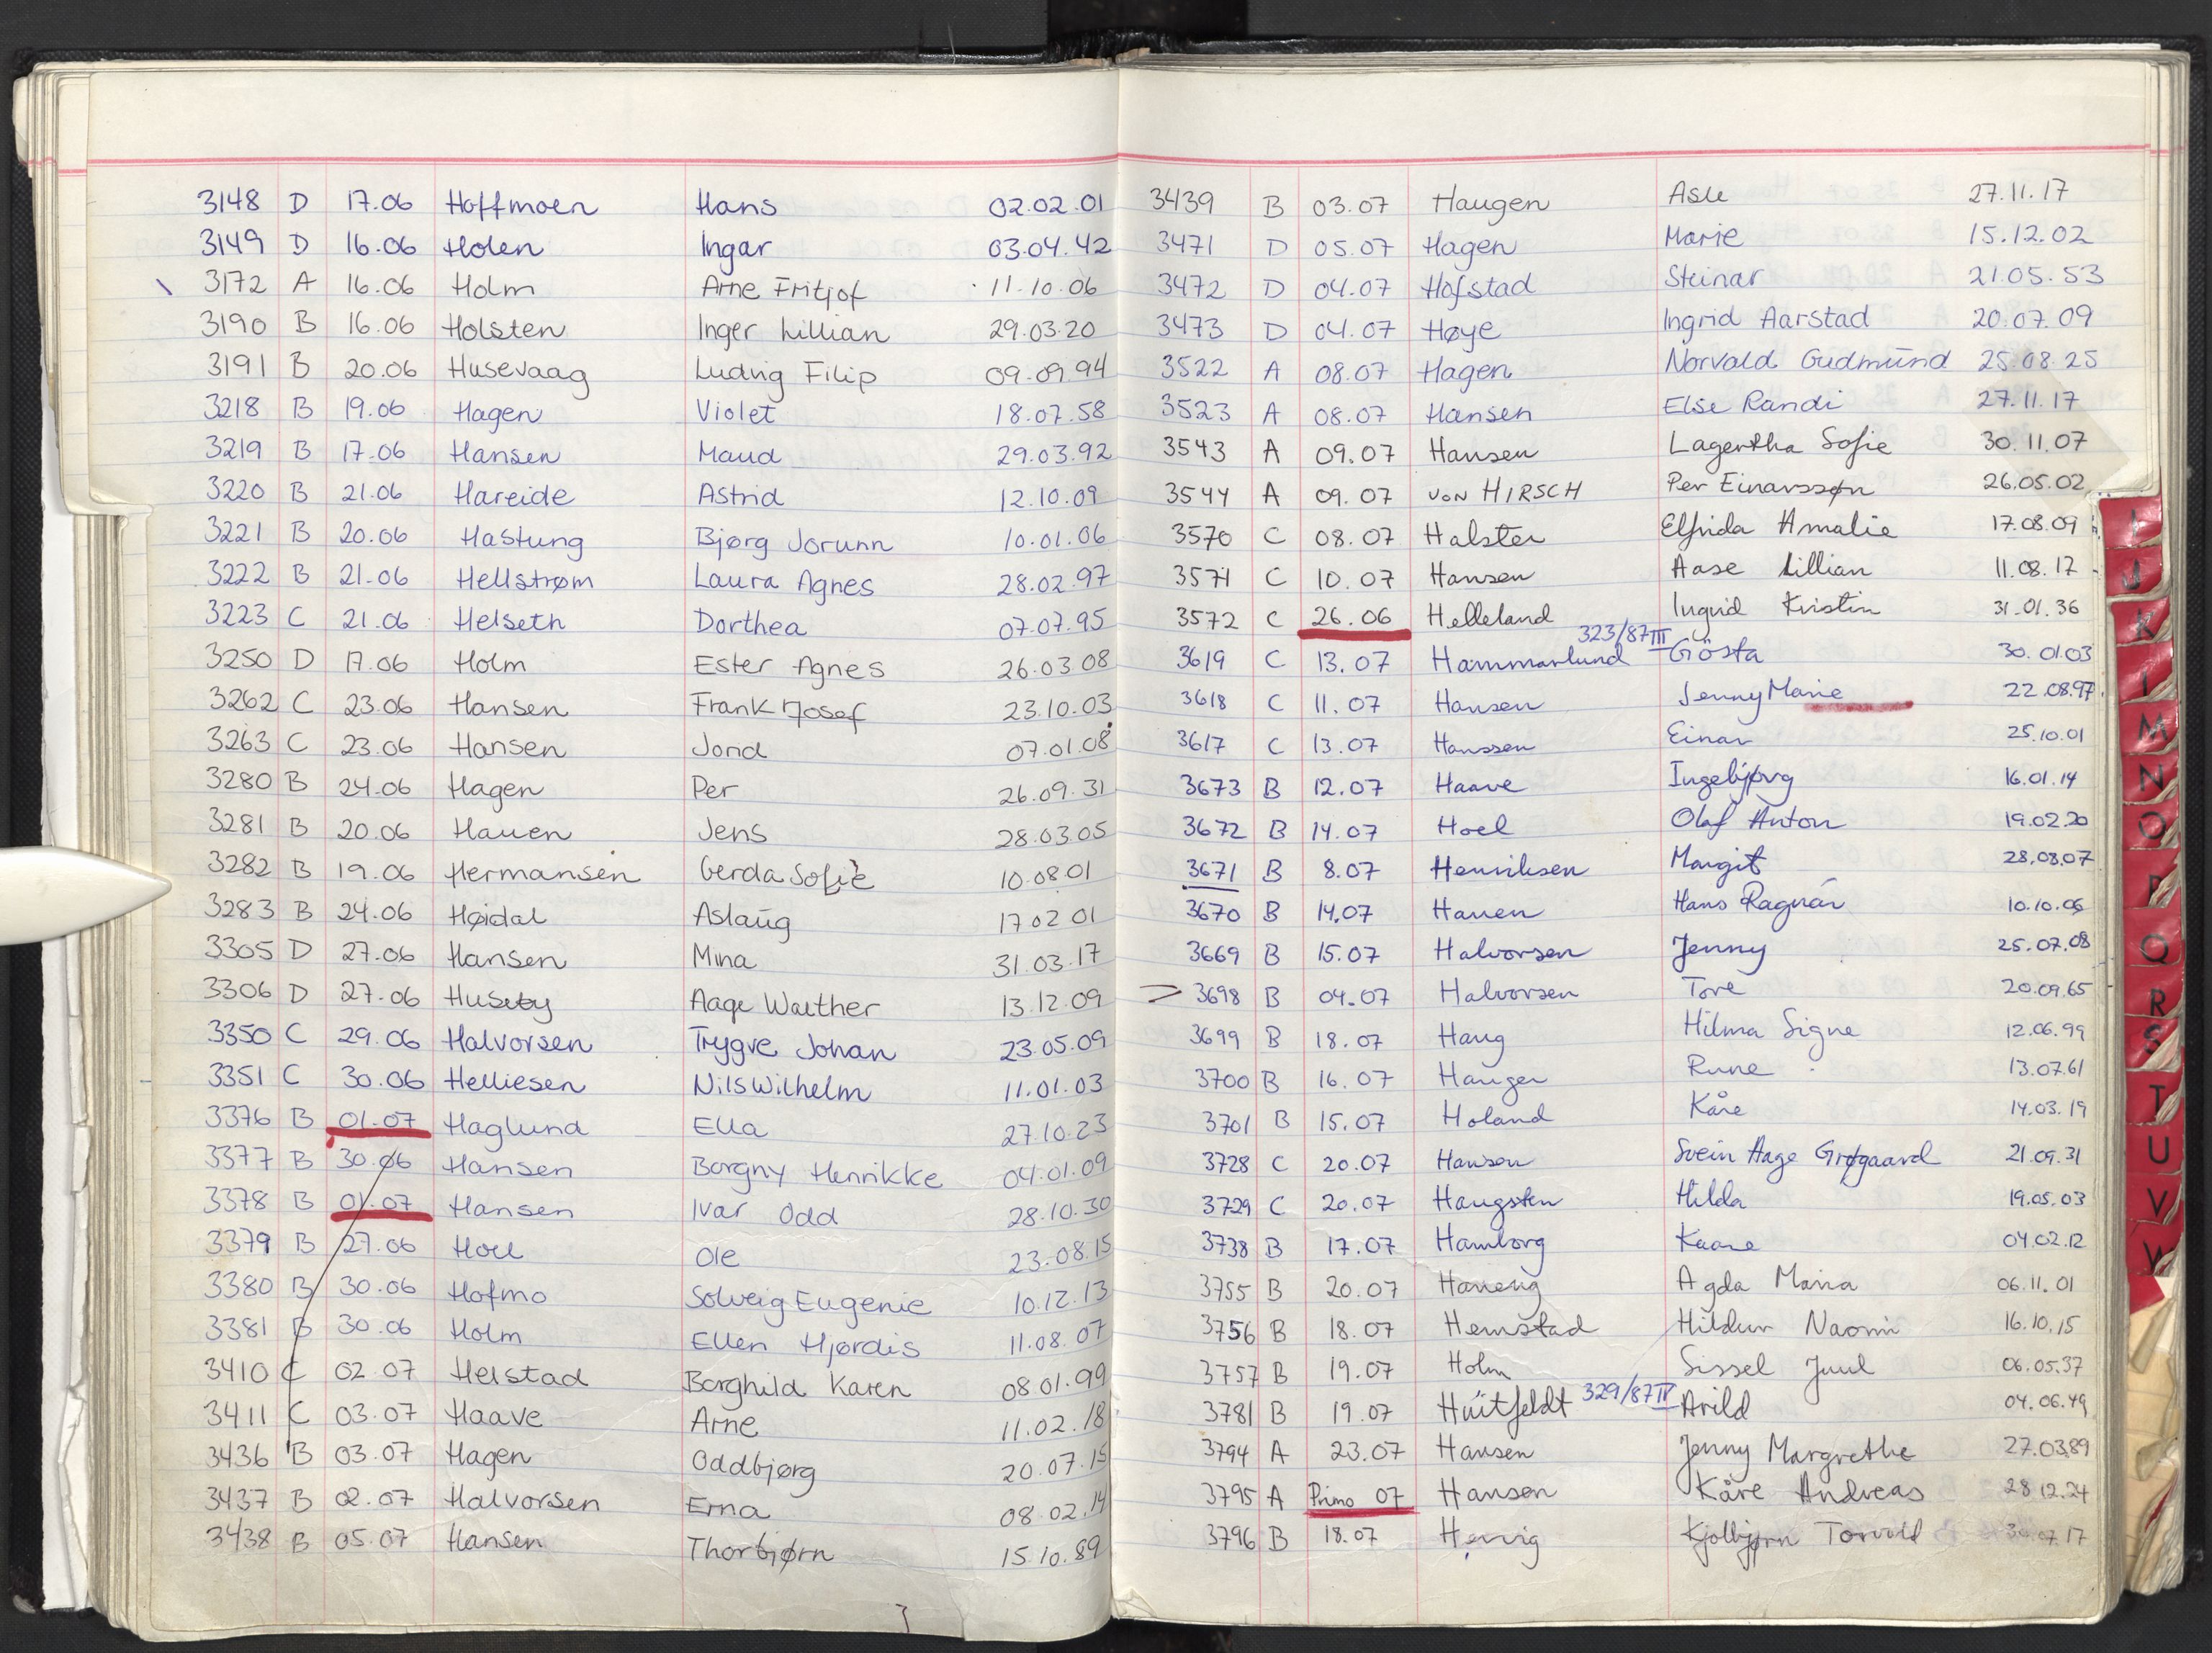 3148 D 17.06 Hoffmoen Hans 02.02.01
3149 D 16.06 Holen Ingar 03.04.42
3172 A 16.06 Holm Arne Fritjof 11.10.06
3190 B 16.06 Holsten Inger Lillian 29.03.20
3191 B 20.06 Husevaag Ludvig Filip 09.09.94
3218 B 19.06 Hagen Violet 18.07.58
3219 B 17.06 Hansen Maud 29.03.92
3220 B 21.06 Hareide Astrid 12.10.09
3221 B 20.06 Hastung Bjørg Jorunn 10.01.06
3222 B 21.06 Hellstrøm Laura Agnes 28.02.97
3223 C 21.06 Helseth Dorthea 07.07.95
3250 D 17.06 Holm Ester Agnes 26.03 08
3262 C 23.06 Hansen Frank Josef 23.10.03
3263 C 23.06 Hansen Jond 07.01.08
3280 B 24.06 Hagen Per 26.09.31
3281 B 20.06 Hauen Jens 28.03.05
3282 B 19.06 Hermansen Gerda Sofie 10.08.01
3283 B 24.06 Høidal Aslaug 17 02 01
3305 D 27.06 Hansen Mina 31.03.17
3306 D 27.06 Huseby Aage Walther 13.12.09
3350 C 29.06 Halvorsen Trygve Johan 23.05.09
3351 C 30.06 Helliesen Nils Wilhelm 11.01.03
3376 B 01.07 Haglund Ella 27.10.23
3377 B 30.06 Hansen Borgny Henrikke 04.01.09
3378 B 01.07 Hansen Ivar Odd 28.10.30
3379 B 27.06 Holl Ole 23.08.15
3380 B 30.06 Hofmo Solveig Eugenie 10.12.13
3381 B 30.06 Holm Ellen Hjørdis 11.08.07
3410 C 02.07 Helstad Borghild Karen 08.01.99
3411 C 03.07 Haave Arne 11.02.18
3436 B 03.07 Hagen Oddbjørg 20.07.15
3437 B 02.07 Halvorsen Erna 08.02.14
3438 B 05.07 Hansen Thorbjørn 15.10.89
3439 B 03.07 Haugen Asle 27.11.17
3471 D 05.07 Hagen Marie 15.12.02
3472 D 04.07 Hofstad Steinar 21.05.53
3473 D 04.07 Høye Ingrid Aarstad 20.07.09
3522 A 08.07 Hagen Norvald Gudmund 25.08.25
3523 A 08.07 Hansen Else Randi 27.11.17
3543 A 09.07 Hansen Lagertha Sofie 30.11.07
3544 A 09.07 von HIRSCH Per Einarssøn 26.05.02
3570 C 08.07 Halster Elfrida Amalie 17.08.09
3571 C 10.07 Hansen Aase Lillian 11.08.17
3572 C 26.06 Helleland Ingrid Kristin 31.01.36
323/87 III
3619 C 13.07 Hammarlund Gösta 30.01.03
3618 C 11.07 Hansen Jenny Marie 22.08.97
3617 C 13.07 Hanssen Einar 25.10.01
3673 B 12.07 Haave Ingebjørg 16.01.14
3672 B 14.07 Hoel Olaf Anton 19.02.20
3671 B 8.07 Henriksen Margit 28.08.07
3670 B 14.07 Hauen Hans Ragnar 10.10.06
3669 B 15.07 Halvorsen Jenny 25.07.08
3698 B 04.07 Halvorsen Tove 20.09.65
3699 B 18.07 Haug Hilma Signe 12.06.99
3700 B 16.07 Haugen Rune 13.07.61
3701 B 15.07 Holand Kåre 14.03.19
3728 C 20.07 Hansen Svein Aage Grøgaard 21.09.31
3729 C 20.07 Haugsten Hilda 19.05.03
3738 B 17.07 Hamborg Kaare 04.02.12
3755 B 20.07 Haneng Agda Maria 06.11.01
3756 B 18.07 Hemstad Hildur Naomi 16.10.15
3757 B 19.07 Holm Sissel Juul 06.05.37
3781 B 19.07 Huitfeldt 329/87 IV Arild 04.06.49
3794 A 23.07 Hansen Jenny Margrethe 27.03.89
3795 A Primo 07 Hansen Kåre Andreas 28.12.24
3796 B 18.07 Hervig Kjølbjørn Torvald 07.17
I
J
K
L
M
N
O
P
Q
R
S
T
U
V
W